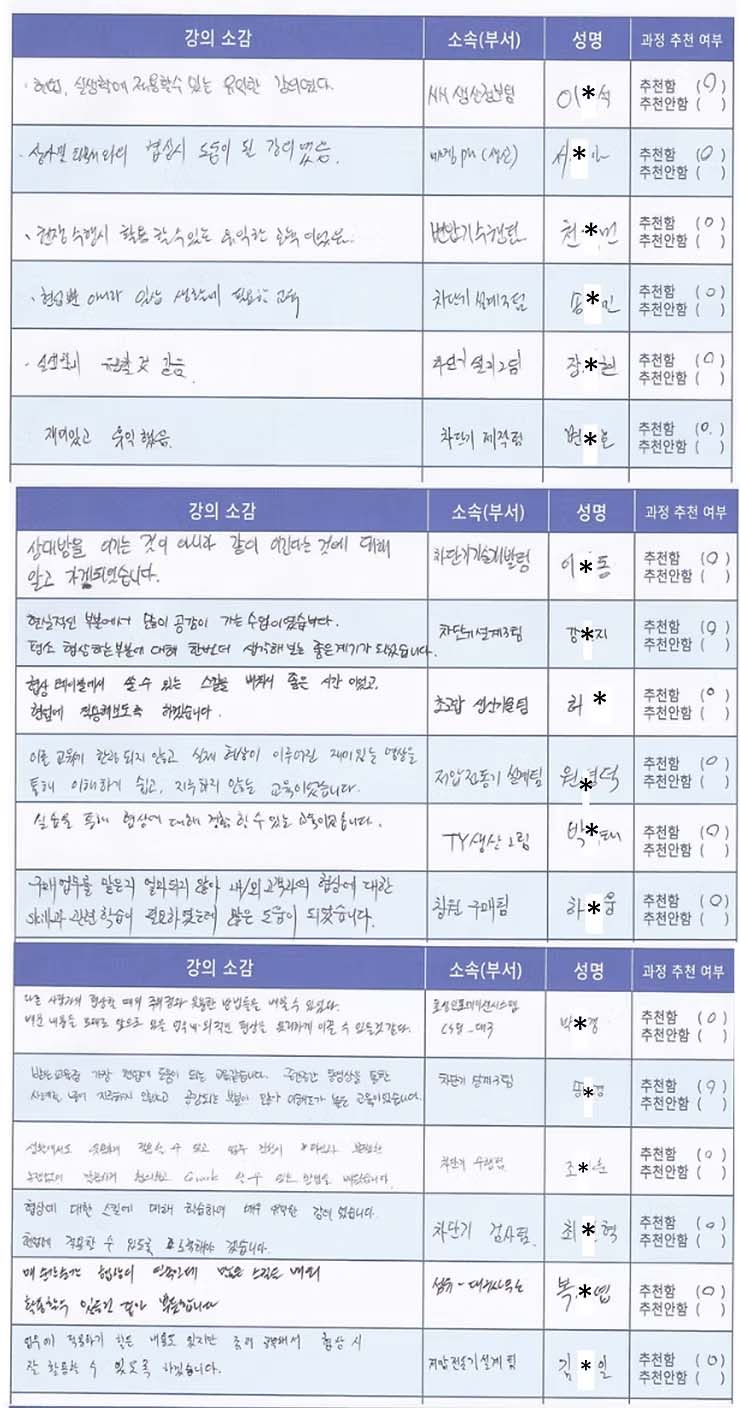 강의 소감 소속(부서) 성명 과정 추천 여부
현업, 실생활에 적용할수 있는 유익한 강의였다. 이*석 추천함 (O)
추천안함 ( )
협상시 도움이 된 강의였음. 추천함 (O)
추천안함 ( )
현장 수행시 활용 할 수 있는 유익한 교육 이었음. 천*민 추천함 (O)
추천안함 ( )
현업뿐 아니라 일상 생활에 필요한 교육 차단기 설계3팀 *민 추천함 (O)
추천안함 ( )
것 같음. 차단기 설계2팀 장*현 추천함 (O)
추천안함 ( )
재미있고 유익했음. 차단기 제작팀 변*호 추천함 (O)
추천안함 ( )
강의 소감 소속(부서) 성명 과정 추천 여부
상대방을 이기는 것이 아니라 같이 이긴다는 것에 대해 차단기기술개발팀 이* 추천함 (O)
알고 가게되었습니다. 추천안함 ( )
현실적인 부분에서 많이 공감이 가는 수업이었습니다. 차단기설계3팀 강*지 추천함 (O)
평소 협상하는부분에 대해 한번더 생각해 보는 좋은계기가 되었습니다. 추천안함 ( )
협상 테이블에서 쓸 수 있는 스킬을 배워서 좋은 시간 이었고, 초고압 생산기술팀 허 * 추천함 (O)
현업에 적용해보도록 하겠습니다. 추천안함 ( )
이론 교육에 한하 되지 않고 실제 협상이 이루어진 재미있는 영상을 저압전동기 설계팀 원*덕 추천함 (O)
통해 이해하기 쉽고, 지루하지 않는 교육이었습니다. 추천안함 ( )
실습을 통해 협상에 대해 경험 할 수 있는 교육이었습니다. TY생산2팀 박*태 추천함 (O)
추천안함 ( )
구매업무를 맡은지 얼마되지 않아 내/외 고객과의 협상에 대한 창원 구매팀 하*웅 추천함 (O)
skill과 관련 학습이 필요하였는데 많은 도움이 되었습니다. 추천안함 ( )
강의 소감 소속(부서) 성명 과정 추천 여부
다른 사람과의 협상할 때의 유용한 방법들을 배울 수 있었다. 효성인포메이션시스템 박*경 추천함 (O)
배운 내용을 토대로 앞으로 있을 업무 내·외적인 협상을 유리하게 이끌 수 있을것 같다. 추천안함 ( )
받은교육중 가장 현업에 도움이 되는 교육같습니다. 중간중간 동영상을 통한 차단기 설계3팀 *경 추천함 (O)
지루하지 않았고 공감되는 부분이 많아 이해도가 높은 교육이었습니다. 추천안함 ( )
차단기 조* 추천함 (O)
배웠습니다. 추천안함 ( )
협상에 대한 스킬에 대해 학습하여 매우 유익한 강의 였습니다. 차단기 검사팀. 최*혁 추천함 (O)
현업에 적용할 수 있도록 노력해야 겠습니다. 추천안함 ( )
매 순간순간 협상의 연속인데 많은 스킬을 배워 복*엽 추천함 (O)
활용할수 있을것 같아 추천안함 ( )
업무에 적용하기 힘든 내용도 있지만 협상 시 저압전동기설계팀 김*일 추천함 (O)
잘 활용할 수 있도록 하겠습니다. 추천안함 ( )